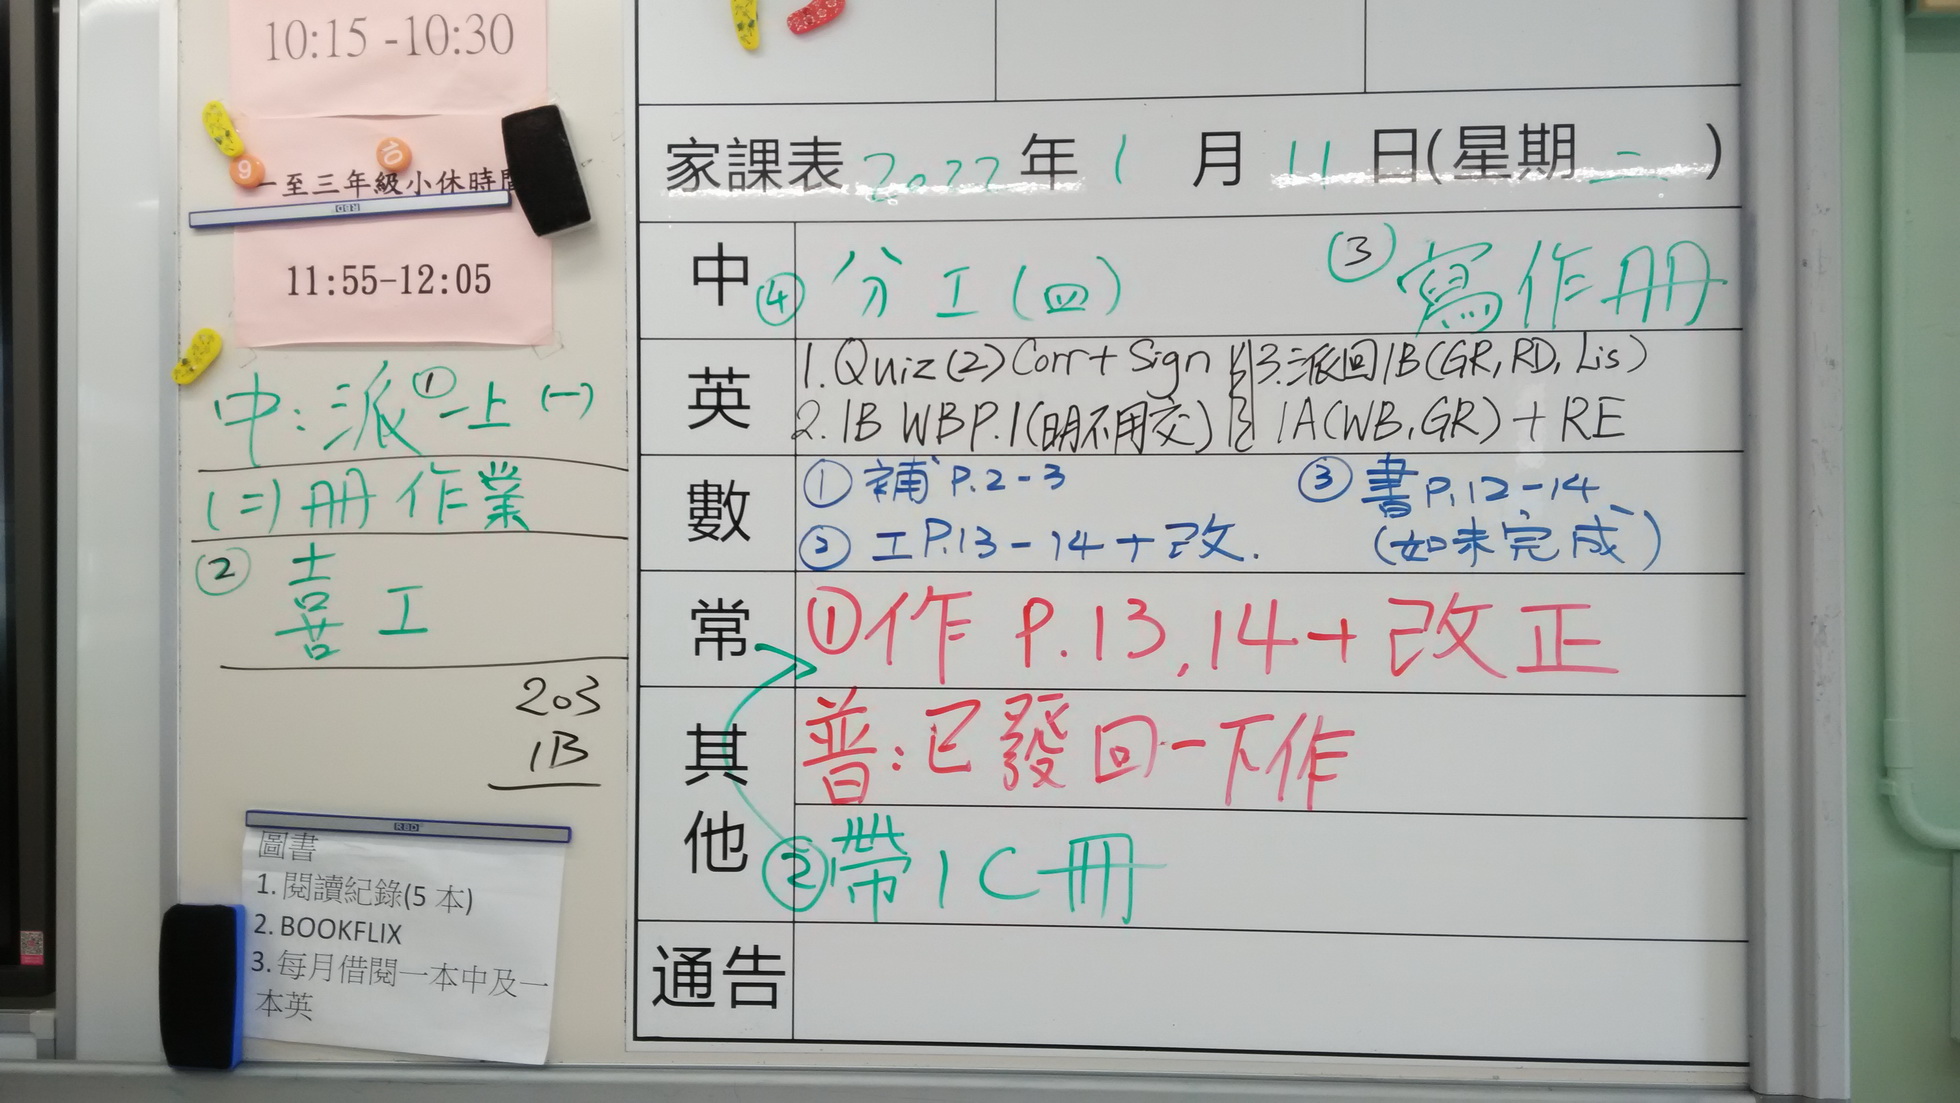 10:15 -10:30
9
10
一至三年級小休時間
RBD
11:55-12:05
中：派①一上(一)
(二)冊作業
② 喜工
203
1B
RBD
圖書
1. 閱讀紀錄(5 本)
2. BOOKFLIX
3. 每月借閱一本中及一
本英
家課表 2022 年 1 月 11 日(星期二)
中 ④ 分工(四) ③ 寫作冊
英
1. Quiz(2) Corr + Sign
2. 1B WB P.1(明不用交)
3. 派回1B(GR, RD, Lis)
1A(WB, GR) + RE
數
① 補 P.2-3
② 工P.13-14+改.
③ 書P.12-14
(如未完成)
常 ①作 P.13,14+改正
其他
普：已發回一下作
②帶1C冊
通告